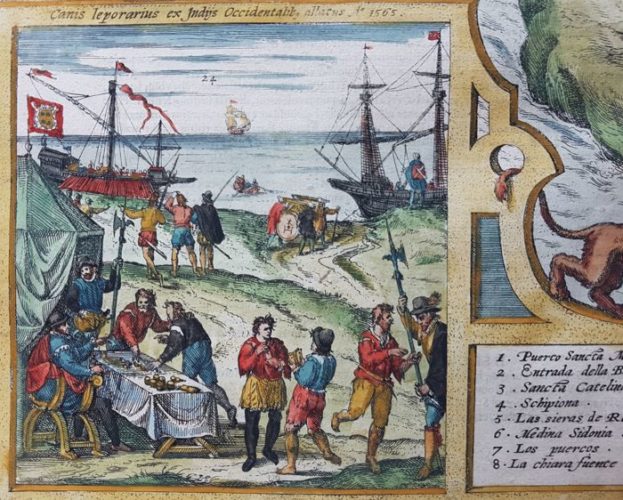 Canis leporarius ex Indijs Occidentalib. allatus. Aº 1565.
24
1 . Puerto Sanctã M
2 Entrada della B
3 . Sanctã Catelin
4 . Schipiona .
5 . Las sieras de R
6 . Medina Sidonia
7 . Los puercos .
8 . La chiara fuente